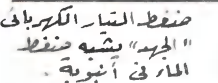 ضغط التيار الكهربائى
"الجهد" يشبه ضغط
الماء فى أنبوبة.